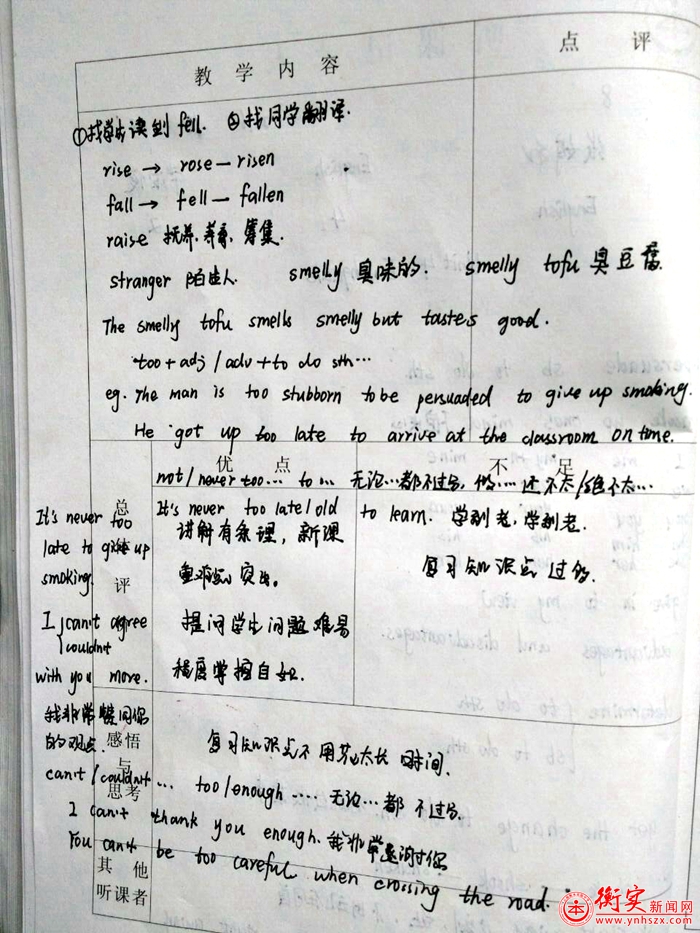 教 学 内 容
点 评
①找学生读到 fell. ②找同学翻译.
rise → rose — risen
fall → fell — fallen
raise 抚养. 养育. 筹集.
stranger 陌生人. smelly 臭味的. smelly tofu 臭豆腐.
The smelly tofu smells smelly but tastes good.
too + adj / adv + to do sth …
eg. The man is too stubborn to be persuaded to give up smoking.
He got up too late to arrive at the classroom on time.
优 点
不 足
not / never too … to … 无论…都不过分, 做…还不太/绝不太…
It's never too late / old to learn. 学到老, 学到老.
讲解有条理, 新课
重难点突出.
提问学生问题难易
程度掌握自如.
复习知识点过多.
总
体
评
It's never too
late to give up
smoking.
I can't agree
couldn't
with you more.
我非常赞同你
的观点.
感悟
与
思考
复习知识点不用花太长时间.
can't / couldn't … too / enough …… 无论…都不过分.
I can't thank you enough. 我非常感谢你
You can't be too careful when crossing the road.
其 他
听课者
衡实新闻网
www.ynhszx.com